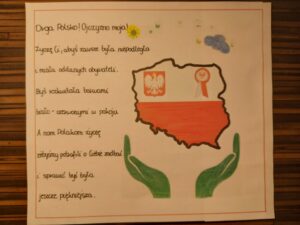 Droga Polsko! Ojczyzno moja!
Życzę Ci, abyś zawsze była niepodległa
i miała oddanych obywateli.
Byś rozkwitała barwami
biało - czerwonymi w pokoju
A nam Polakom życzę
żebyśmy potrafili o Ciebie zadbać
i sprawić byś była
jeszcze piękniejsza.